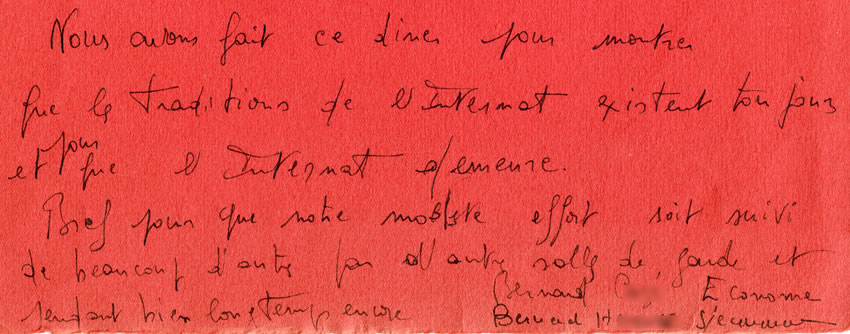 Nous avons fait ce diner pour montrer
que les traditions de l'Internat existent toujours
et pour que l'Internat demeure.
Bref pour que notre modeste effort soit suivi
de beaucoup d'autre par d'autre salle de garde et
pendant bien longtemp encore
Bernard Econome
Bernard H